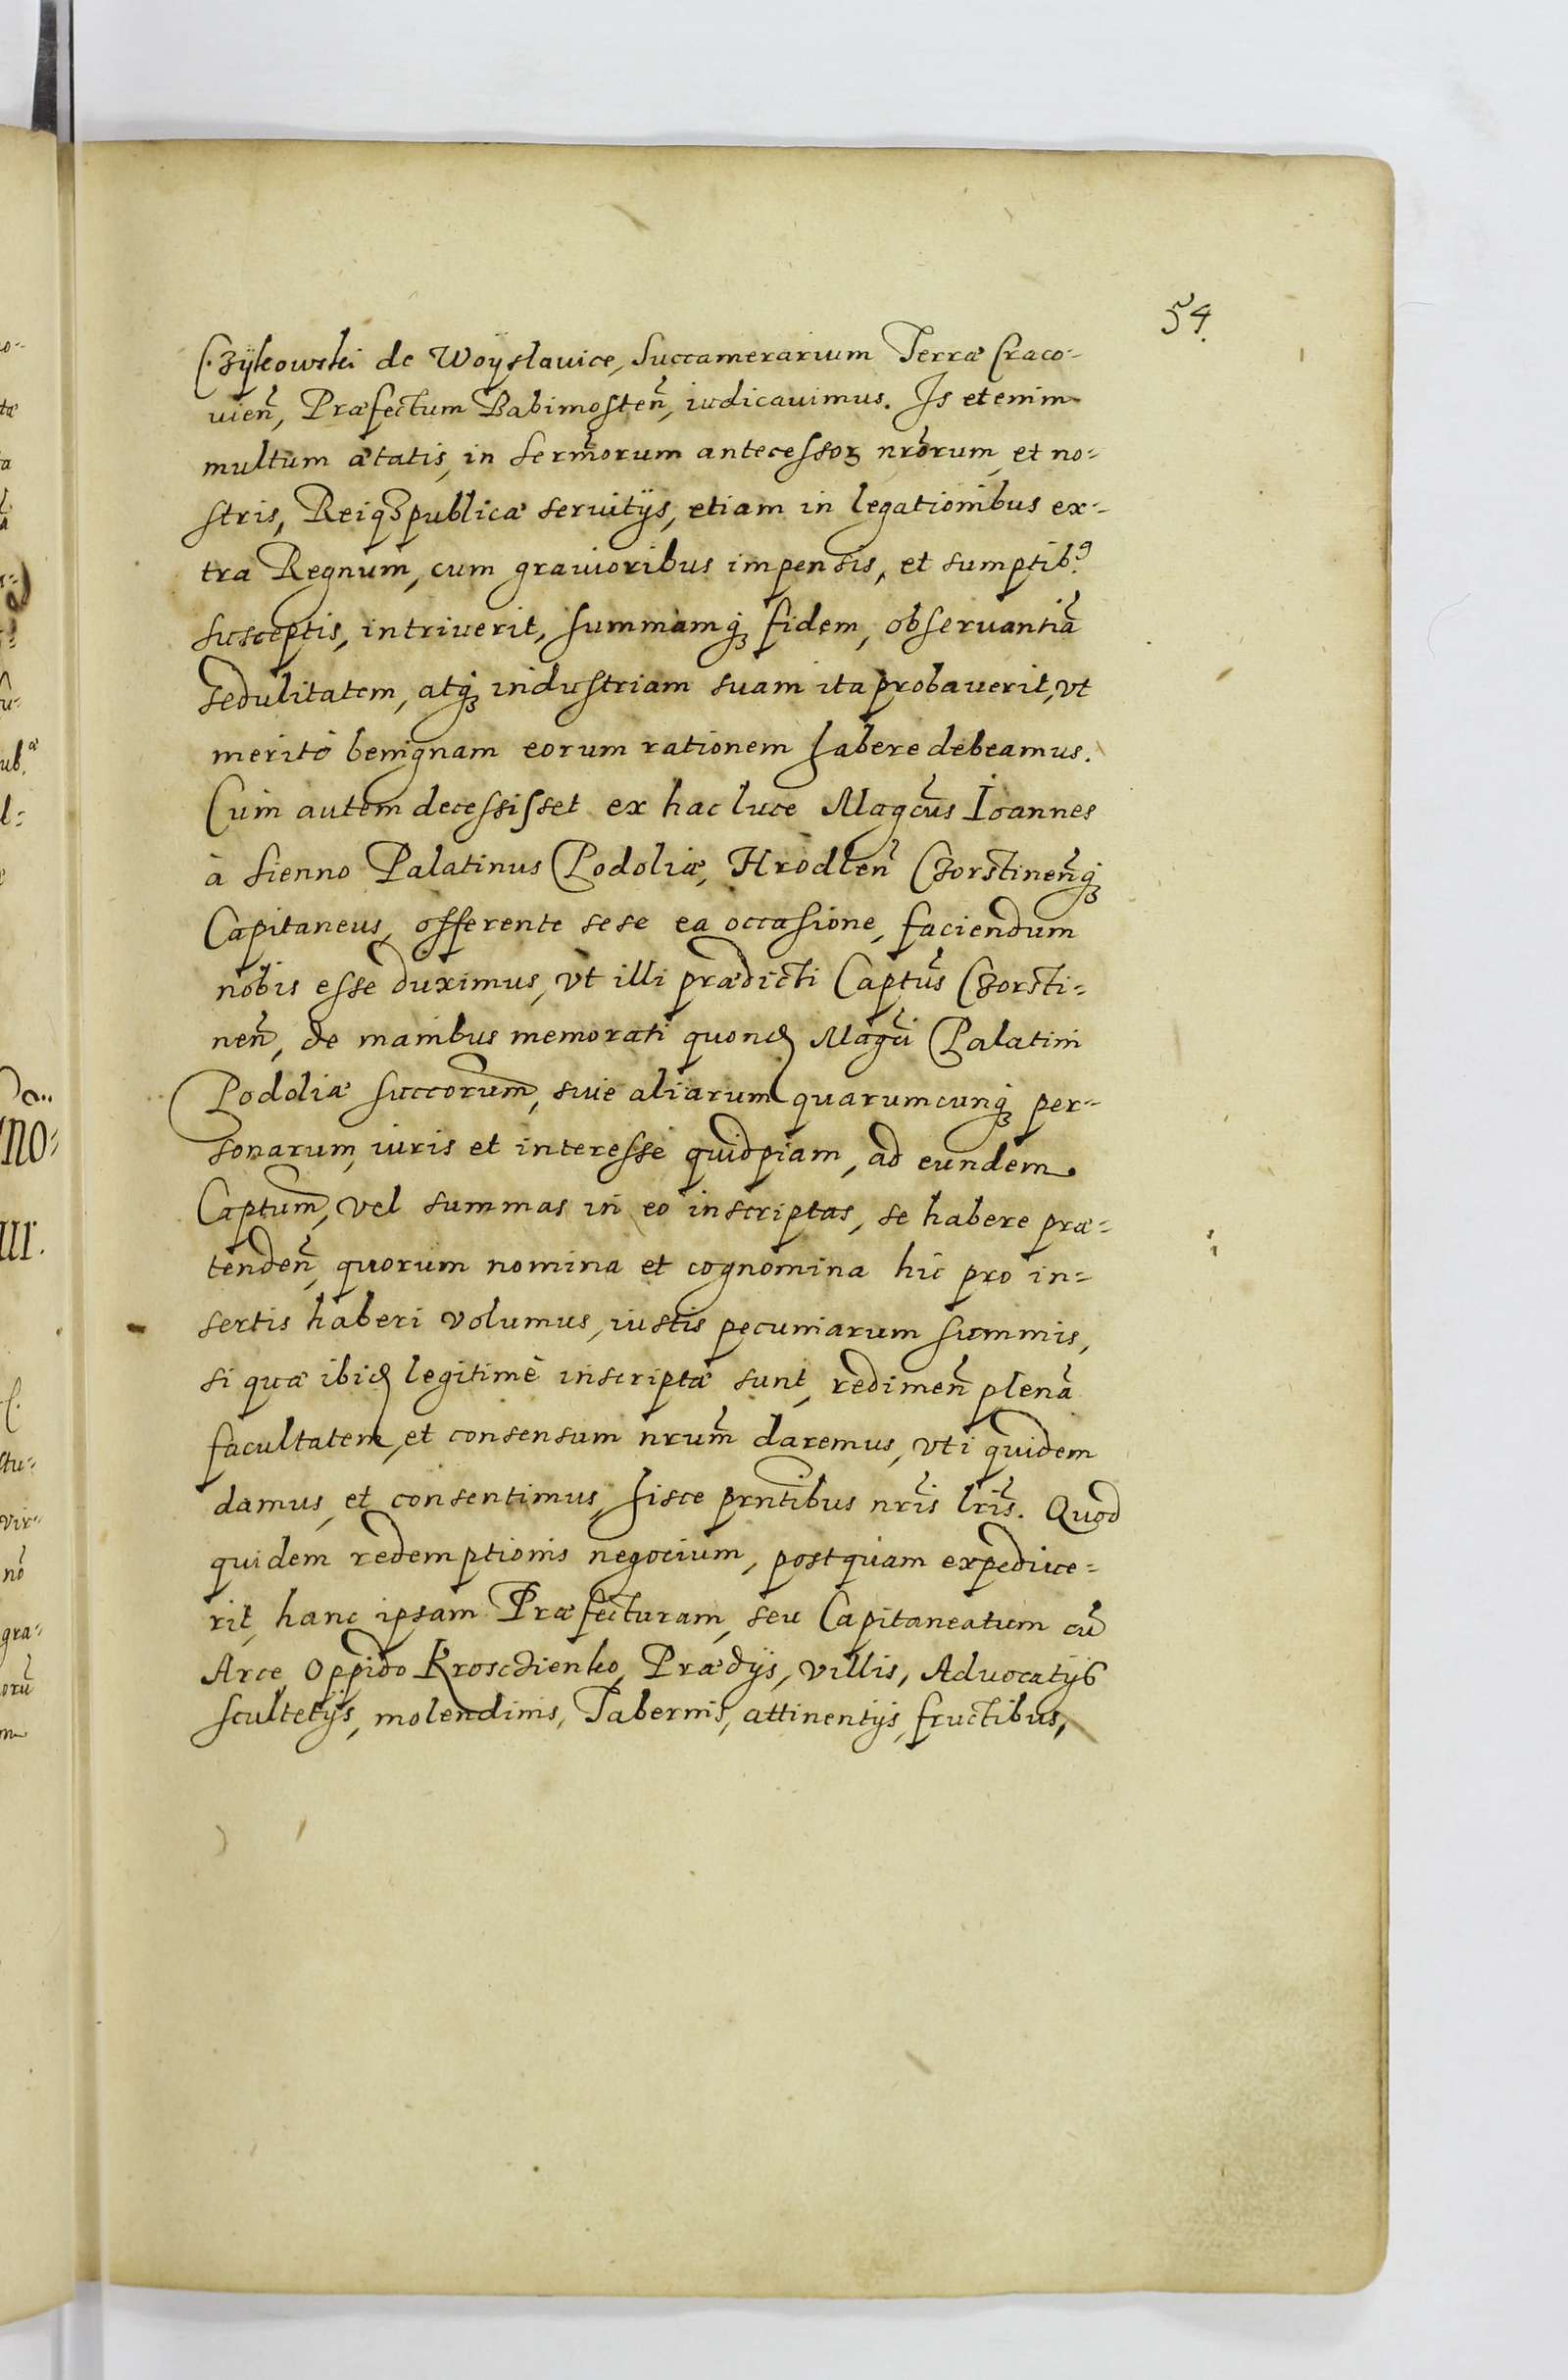 54.
Czÿkowski de Woÿslauice, Succamerarium Terræ Craco-
vien̄, Præfectum Babimosten̄, iudicauimus. Is etenim
multum ætatis, in Serm̄orum antecessoꝝ nr̄orum, et no-
stris, Reiqꝫpublicæ seruitÿs, etiam in legationibus ex-
tra Regnum, cum grauioribus impensis, et sumptibꝰ
susceptis, intriuerit, summamqꝫ fidem, obseruantiā
sedulitatem, atqꝫ industriam suam ita probauerit, vt
meritò benignam eorum rationem habere debeamus.
Cum autem decessisset ex hac luce Magc̄us Ioannes
à Sienno Palatinus Podoliæ, Hrodlen̄ Czorstinen̄qꝫ
Capitaneus, offerente sese ea occasione, faciendum
nobis esse duximus, vt illi prædicti Capt̄us Czorsti-
nen̄, de manibus memorati quond Magc̄i Palatini
Podoliæ succorum̄, siue aliarum quarumcunqꝫ per-
sonarum, iuris et interesse quidpiam, ad eundem
Captum̄, vel summas in eo inscriptas, se habere præ-
tenden̄, quorum nomina et cognomina hic pro in-
sertis haberi volumus, iustis pecuniarum summis,
si quæ ibid legitimè inscriptæ sunt, redimen̄ plenā
facultatem, et consensum nrum̄ daremus, vti quidem
damus, et consentimus, hisce prn̄tibus nr̄is lr̄is. Quod
quidem redemptionis negocium, postquam expediue-
rit, hanc ipsam Præfecturam, seu Capitaneatum cū
Arce, Oppido Krosczienko, Prædÿs, villis, Aduocatÿs
scultetÿs, molendinis, Tabernis, attinentÿs, fructibus,